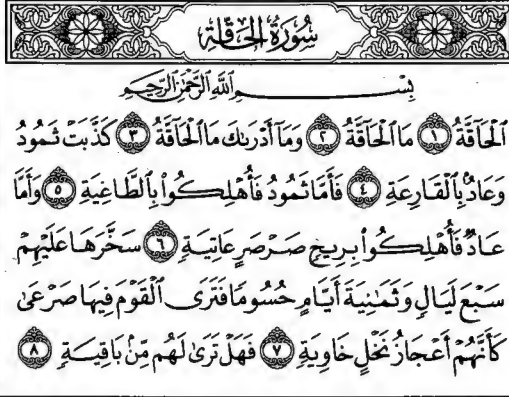 سُورَةُ الحَاقَّة
بِسْمِ ٱللَّهِ ٱلرَّحْمَٰنِ ٱلرَّحِيمِ
ٱلْحَآقَّةُ ١ مَا ٱلْحَآقَّةُ ٢ وَمَآ أَدْرَىٰكَ مَا ٱلْحَآقَّةُ ٣ كَذَّبَتْ ثَمُودُ
وَعَادٌۢ بِٱلْقَارِعَةِ ٤ فَأَمَّا ثَمُودُ فَأُهْلِكُوا۟ بِٱلطَّاغِيَةِ ٥ وَأَمَّا
عَادٌ فَأُهْلِكُوا۟ بِرِيحٍ صَرْصَرٍ عَاتِيَةٍ ٦ سَخَّرَهَا عَلَيْهِمْ
سَبْعَ لَيَالٍ وَثَمَٰنِيَةَ أَيَّامٍ حُسُومًا فَتَرَى ٱلْقَوْمَ فِيهَا صَرْعَىٰ
كَأَنَّهُمْ أَعْجَازُ نَخْلٍ خَاوِيَةٍ ٧ فَهَلْ تَرَىٰ لَهُم مِّنۢ بَاقِيَةٍ ٨